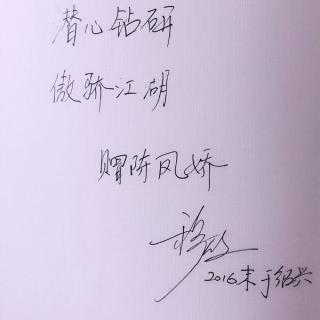 潜心钻研
傲骄江湖
赠陈凤娇
2016末于绍兴